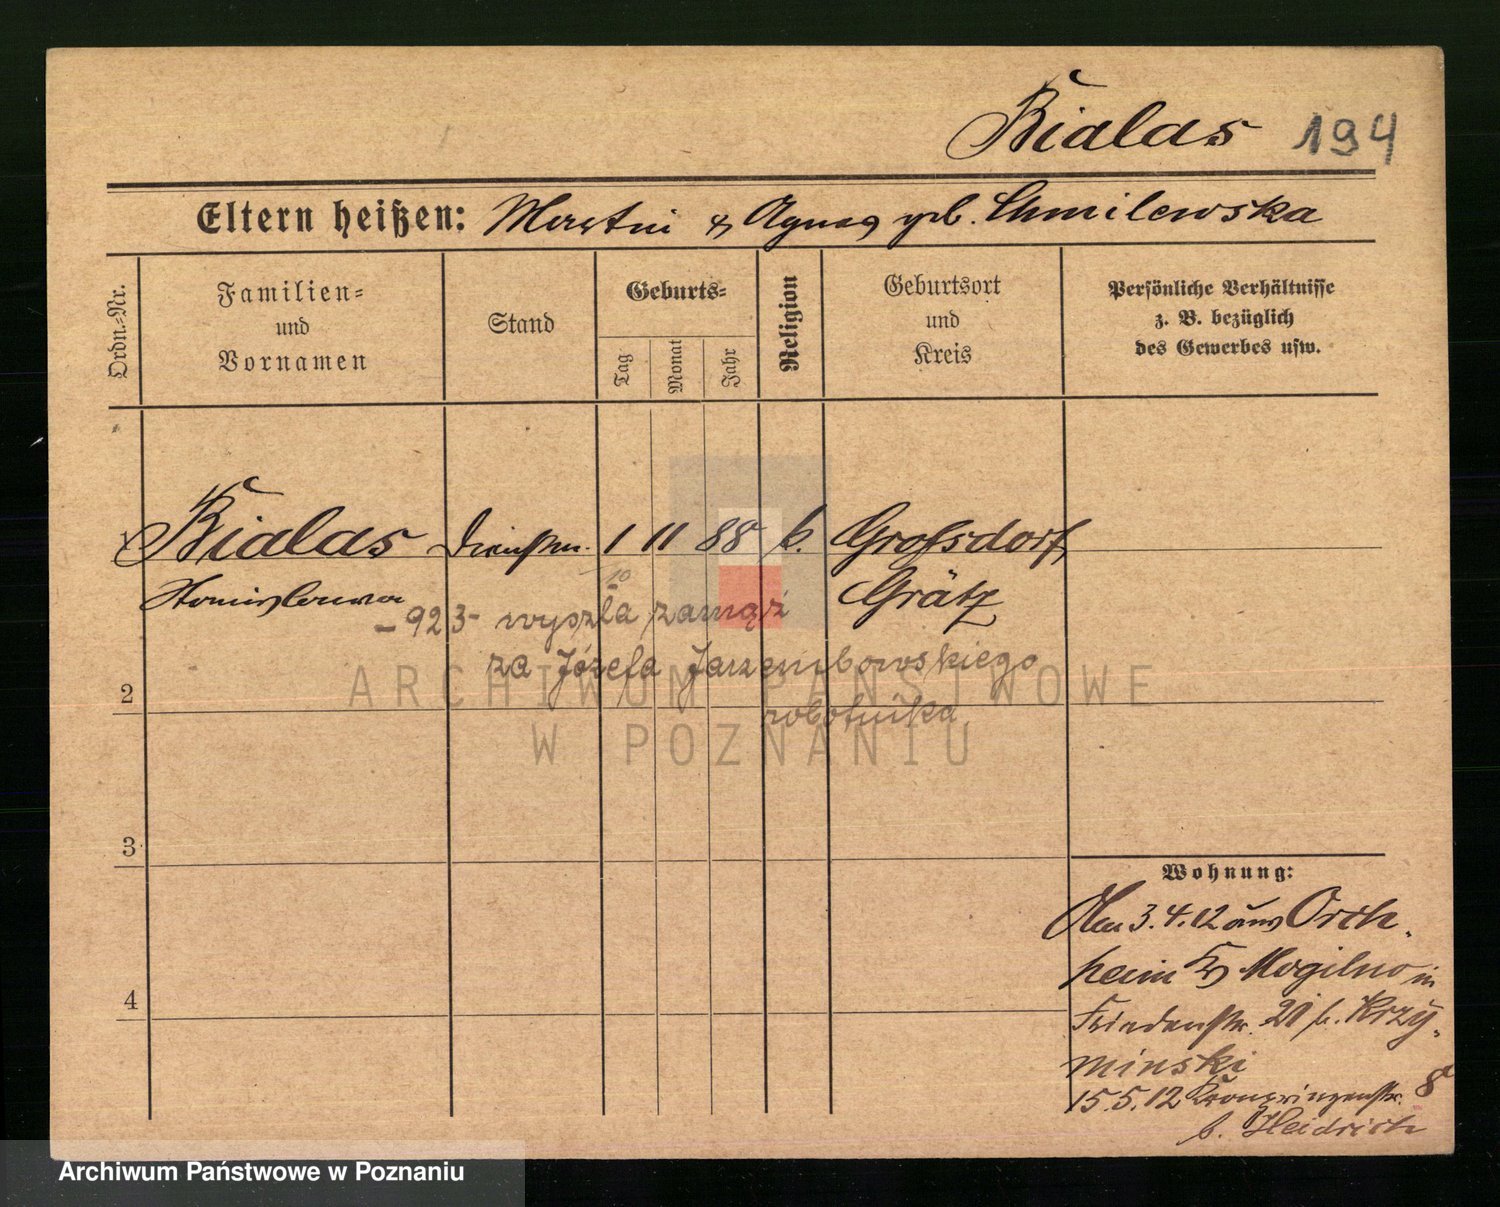 Bialas 194
Eltern heißen: Martin & Agnes geb. Chmilewska
Ordn.-Nr.
Familien-
und
Vornamen
Stand
Geburts-
Tag
Monat
Jahr
Religion
Geburtsort
und
Kreis
Persönliche Verhältnisse
z. B. bezüglich
des Gewerbes usw.
1 Bialas Dienstm. 1 11 88 k. Grofsdorf
Stanislawa Grätz
10
-923- wyszła zamąż
za Józefa Jarzembowskiego
robotnika
2
3
4
Wohnung:
Am 3.4.12 aus Orch-
heim Kr Mogilno in
Friedenstr. 21 b. Krzy-
minski
15.5.12 Kronprinzenstr. 8
b. Heidrich
ARCHIWUM PAŃSTWOWE
W POZNANIU
Archiwum Państwowe w Poznaniu